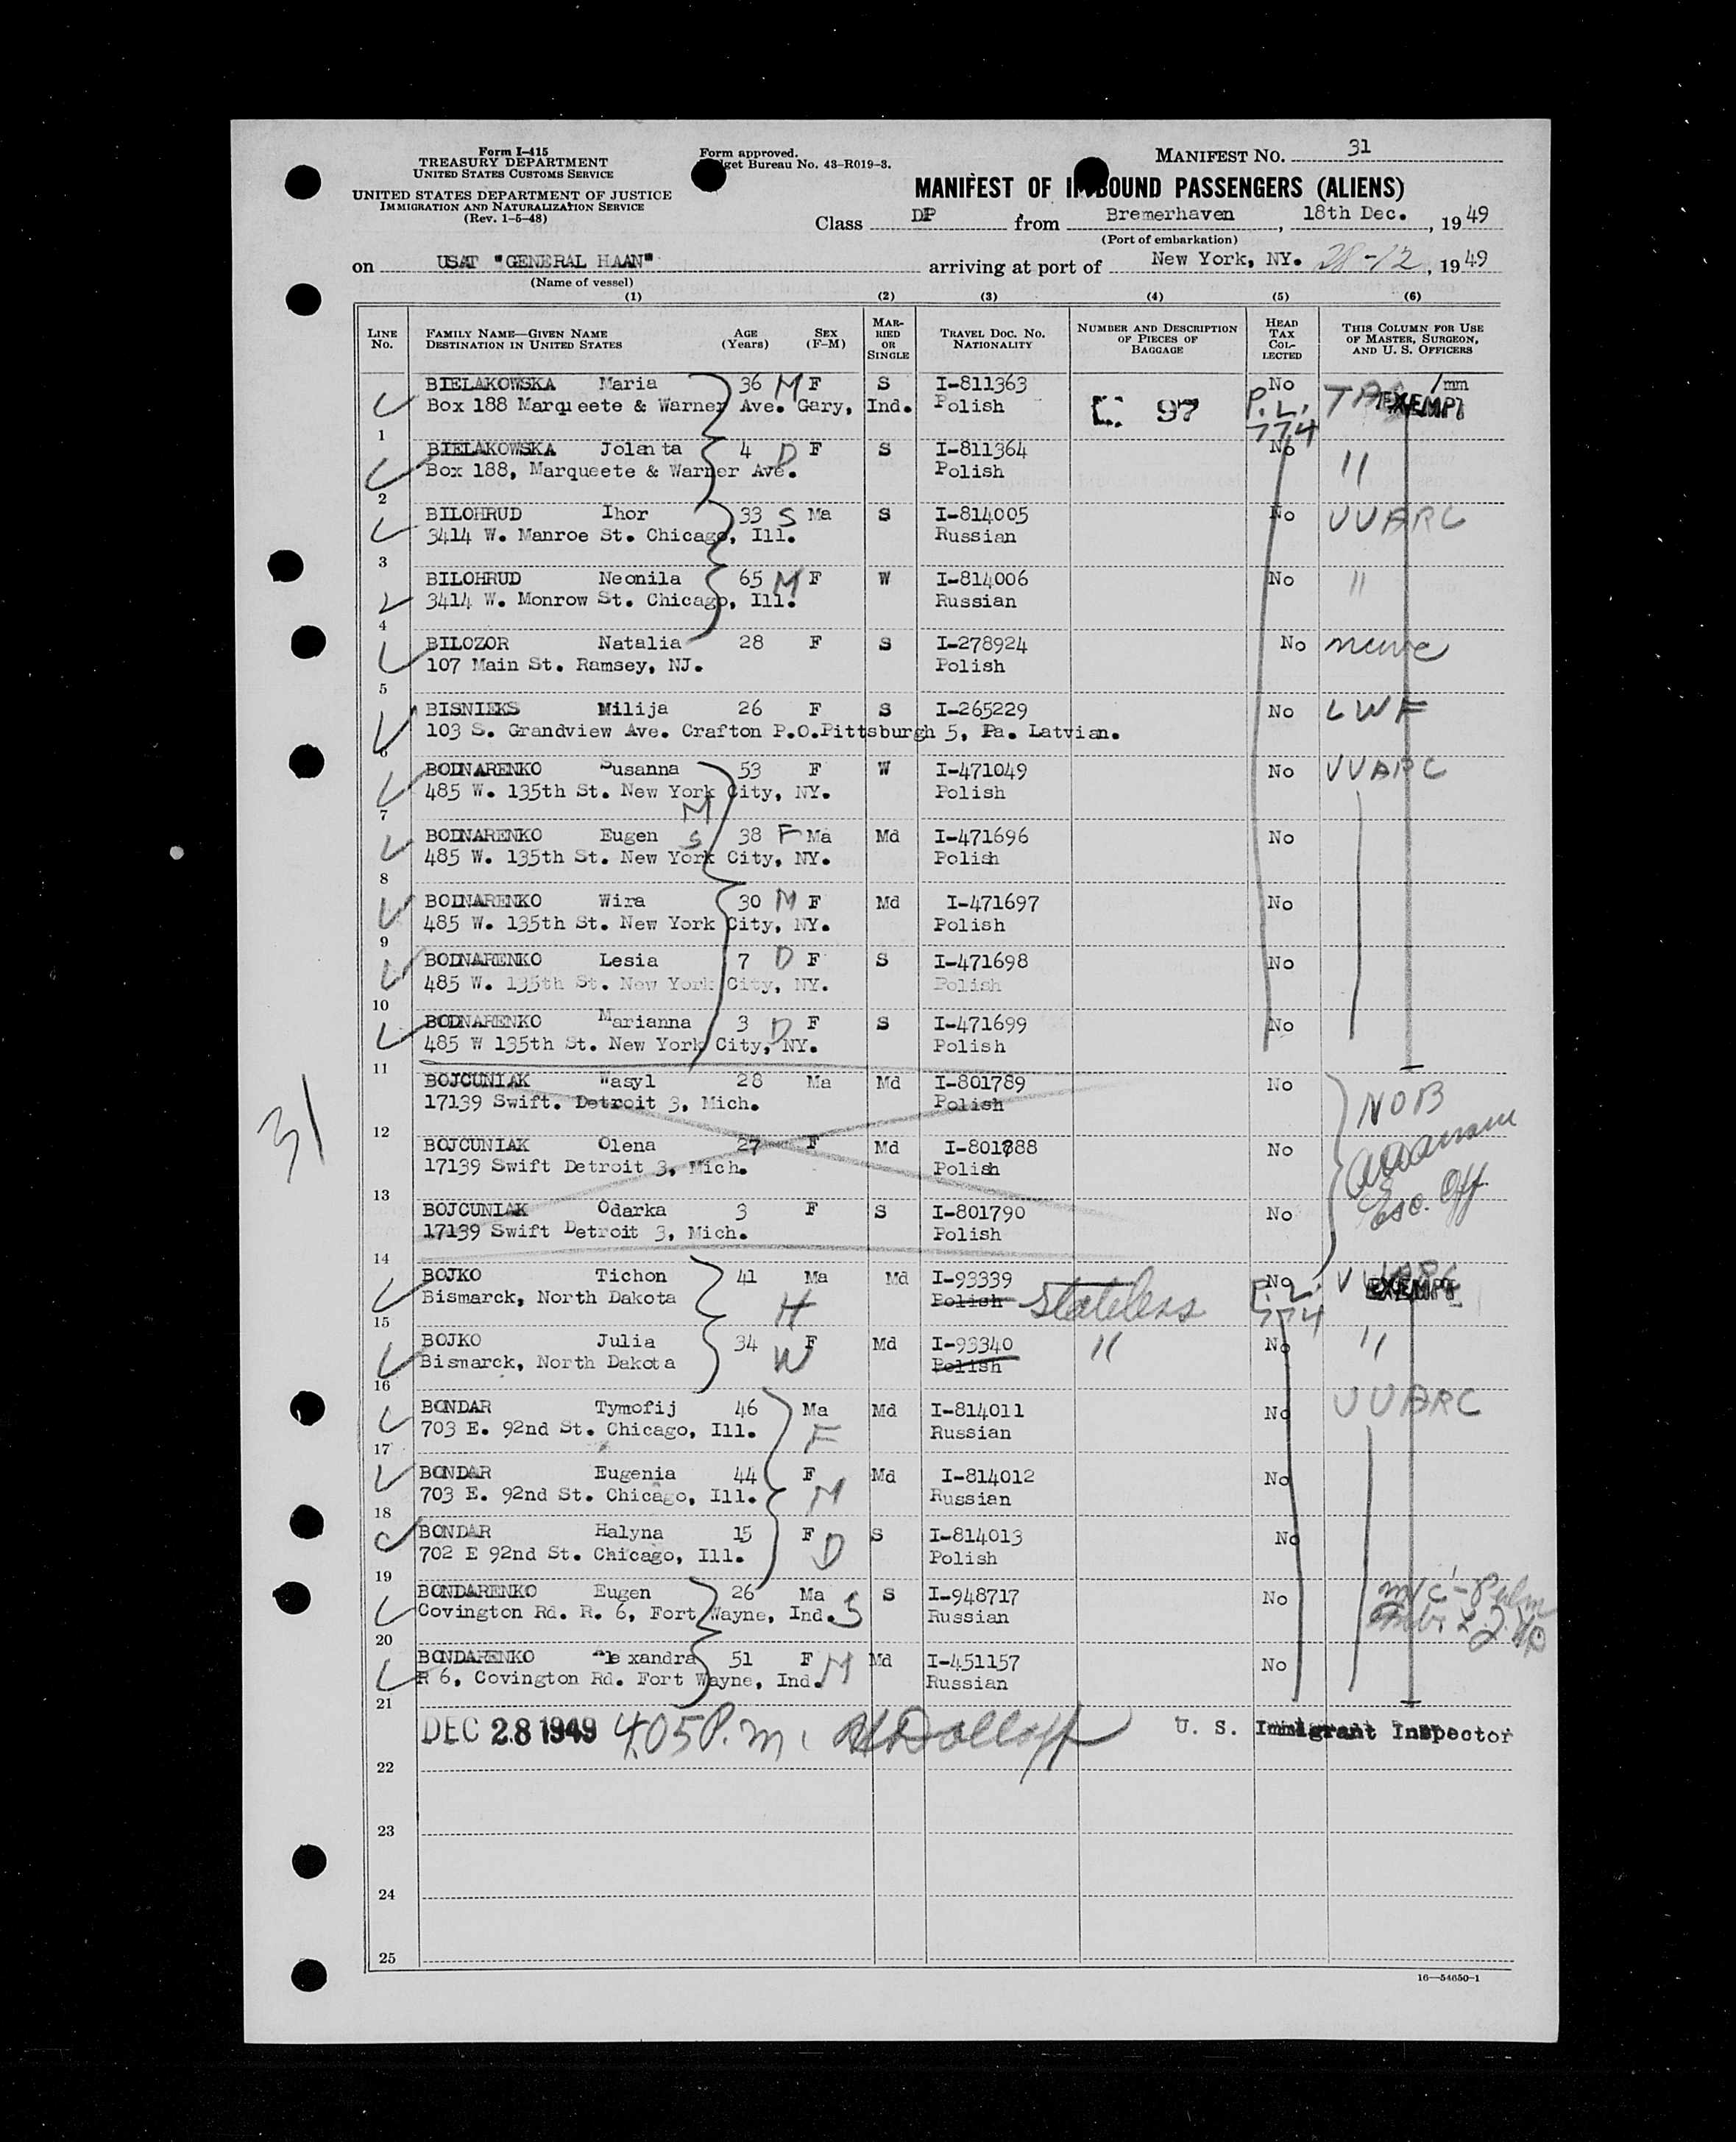 Form I-415
TREASURY DEPARTMENT
UNITED STATES CUSTOMS SERVICE
UNITED STATES DEPARTMENT OF JUSTICE
IMMIGRATION AND NATURALIZATION SERVICE
(Rev. 1-5-48)
Form approved.
get Bureau No. 43-R019-3.
MANIFEST No. 31
MANIFEST OF INBOUND PASSENGERS (ALIENS)
Class DP from Bremerhaven, 18th Dec., 1949
(Port of embarkation)
on USAT "GENERAL HAAN" arriving at port of New York, NY. 28-12, 1949
(Name of vessel)
(1) (2) (3) (4) (5) (6)
LINE No. FAMILY NAME—GIVEN NAME DESTINATION IN UNITED STATES AGE (Years) SEX (F-M) MARRIED OR SINGLE TRAVEL DOC. No. NATIONALITY NUMBER AND DESCRIPTION OF PIECES OF BAGGAGE HEAD TAX COLLECTED THIS COLUMN FOR USE OF MASTER, SURGEON, AND U. S. OFFICERS
BIELAKOWSKA Maria 36 M F S I-811363 No /mm
Box 188 Marqueete & Warner Ave. Gary, Ind. Polish 97 P.L. 774 EXEMPT
1
BIELAKOWSKA Jolanta 4 D F S I-811364 No "
Box 188, Marqueete & Warner Ave. Polish
2
BILOHRUD Ihor 33 S Ma S I-814005 No UUARC
3414 W. Manroe St. Chicago, Ill. Russian
3
BILOHRUD Neonila 65 M F W I-814006 No "
3414 W. Monrow St. Chicago, Ill. Russian
4
BILOZOR Natalia 28 F S I-278924 No ncwc
107 Main St. Ramsey, NJ. Polish
5
BISNIEKS Milija 26 F S I-265229 No LWF
103 S. Grandview Ave. Crafton P.O.Pittsburgh 5, Pa. Latvian.
6
BODNARENKO Susanna 53 F W I-471049 No UUARC
485 W. 135th St. New York City, NY. Polish
7 M
BODNARENKO Eugen S 38 F Ma Md I-471696 No
485 W. 135th St. New York City, NY. Polish
8
BODNARENKO Wira 30 M F Md I-471697 No
485 W. 135th St. New York City, NY. Polish
9
BODNARENKO Lesia 7 D F S I-471698 No
485 W. 135th St. New York City, NY. Polish
10
BODNARENKO Marianna 3 D F S I-471699 No
485 W 135th St. New York City, NY. Polish
11
BOJCUNIAK Wasyl 28 Ma Md I-801789 No NOB
17139 Swift. Detroit 3, Mich. Polish
12
BOJCUNIAK Olena 27 F Md I-801788 No
17139 Swift Detroit 3, Mich. Polish
13
BOJCUNIAK Odarka 3 F S I-801790 No Esc. Off.
17139 Swift Detroit 3, Mich. Polish
14
31
BOJKO Tichon 41 Ma Md I-93339 No UUARC
Bismarck, North Dakota H Polish stateless P.L. 774 EXEMPT
15
BOJKO Julia 34 F Md I-93340 " No "
Bismarck, North Dakota W Polish
16
BONDAR Tymofij 46 Ma Md I-814011 No UUARC
703 E. 92nd St. Chicago, Ill. F Russian
17
BONDAR Eugenia 44 F Md I-814012 No
703 E. 92nd St. Chicago, Ill. M Russian
18
BONDAR Halyna 15 F S I-814013 No
702 E 92nd St. Chicago, Ill. D Polish
19
BONDARENKO Eugen 26 Ma S I-948717 No m/c-Pulm
Covington Rd. R. 6, Fort Wayne, Ind. S Russian
20
BONDARENKO Alexandra 51 F Md I-451157 No
R 6, Covington Rd. Fort Wayne, Ind. M Russian
21
DEC 28 1949 4.05 P.m. U. S. Immigrant Inspector
22
23
24
25
16—54650-1